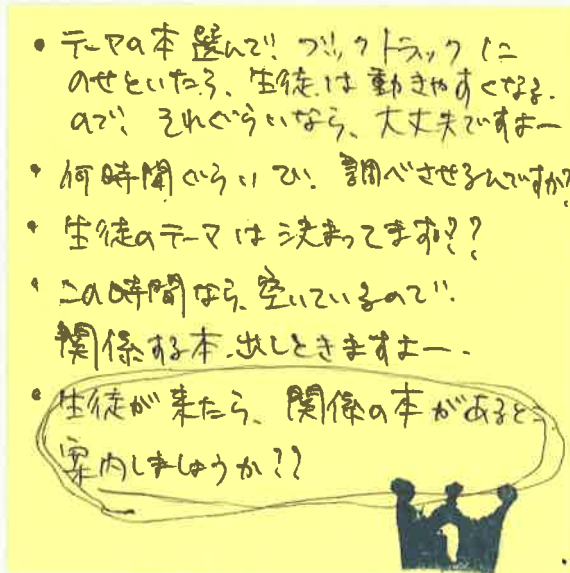 ・テーマの本選んで、ブックトラックに
のせといたら、生徒は動きやすくなる
ので、それぐらいなら、大丈夫ですよー
・何時間ぐらいで、調べさせるんですか?
・生徒のテーマは決まってますか??
・この時間なら、空いているので、
関係する本、出しときますよー。
・生徒が来たら、関係の本があるとこ
案内しましょうか??
1